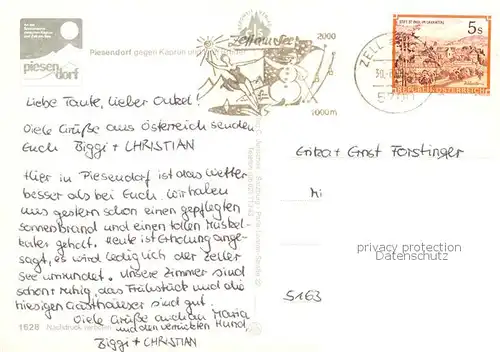 piesen
dorf
Piesendorf gegen Kaprun und
Zell am See
2000
1000m
ZELL
5s
REPUBLIK ÖSTERREICH
Liebe Tante, lieber Onkel!
Viele Grüße aus Österreich senden
Euch Biggi + CHRISTIAN
Hier in Piesendorf ist das Wetter
besser als bei Euch. Wir haben
uns gestern schon einen gepflegten
Sonnenbrand und einen tollen Muskel-
kater geholt. Heute ist Erholung ange-
sagt, es wird lediglich der Zeller
See umrundet. Unsere Zimmer sind
schön ruhig, das Frühstück und die
hiesigen Gasthäuser sind gut.
Viele Grüße auch an Maria
und den verrückten Hund
Biggi + CHRISTIAN
1628 Nachdruck verboten
Erika + Ernst Forstinger
5163
privacy protection
Datenschutz